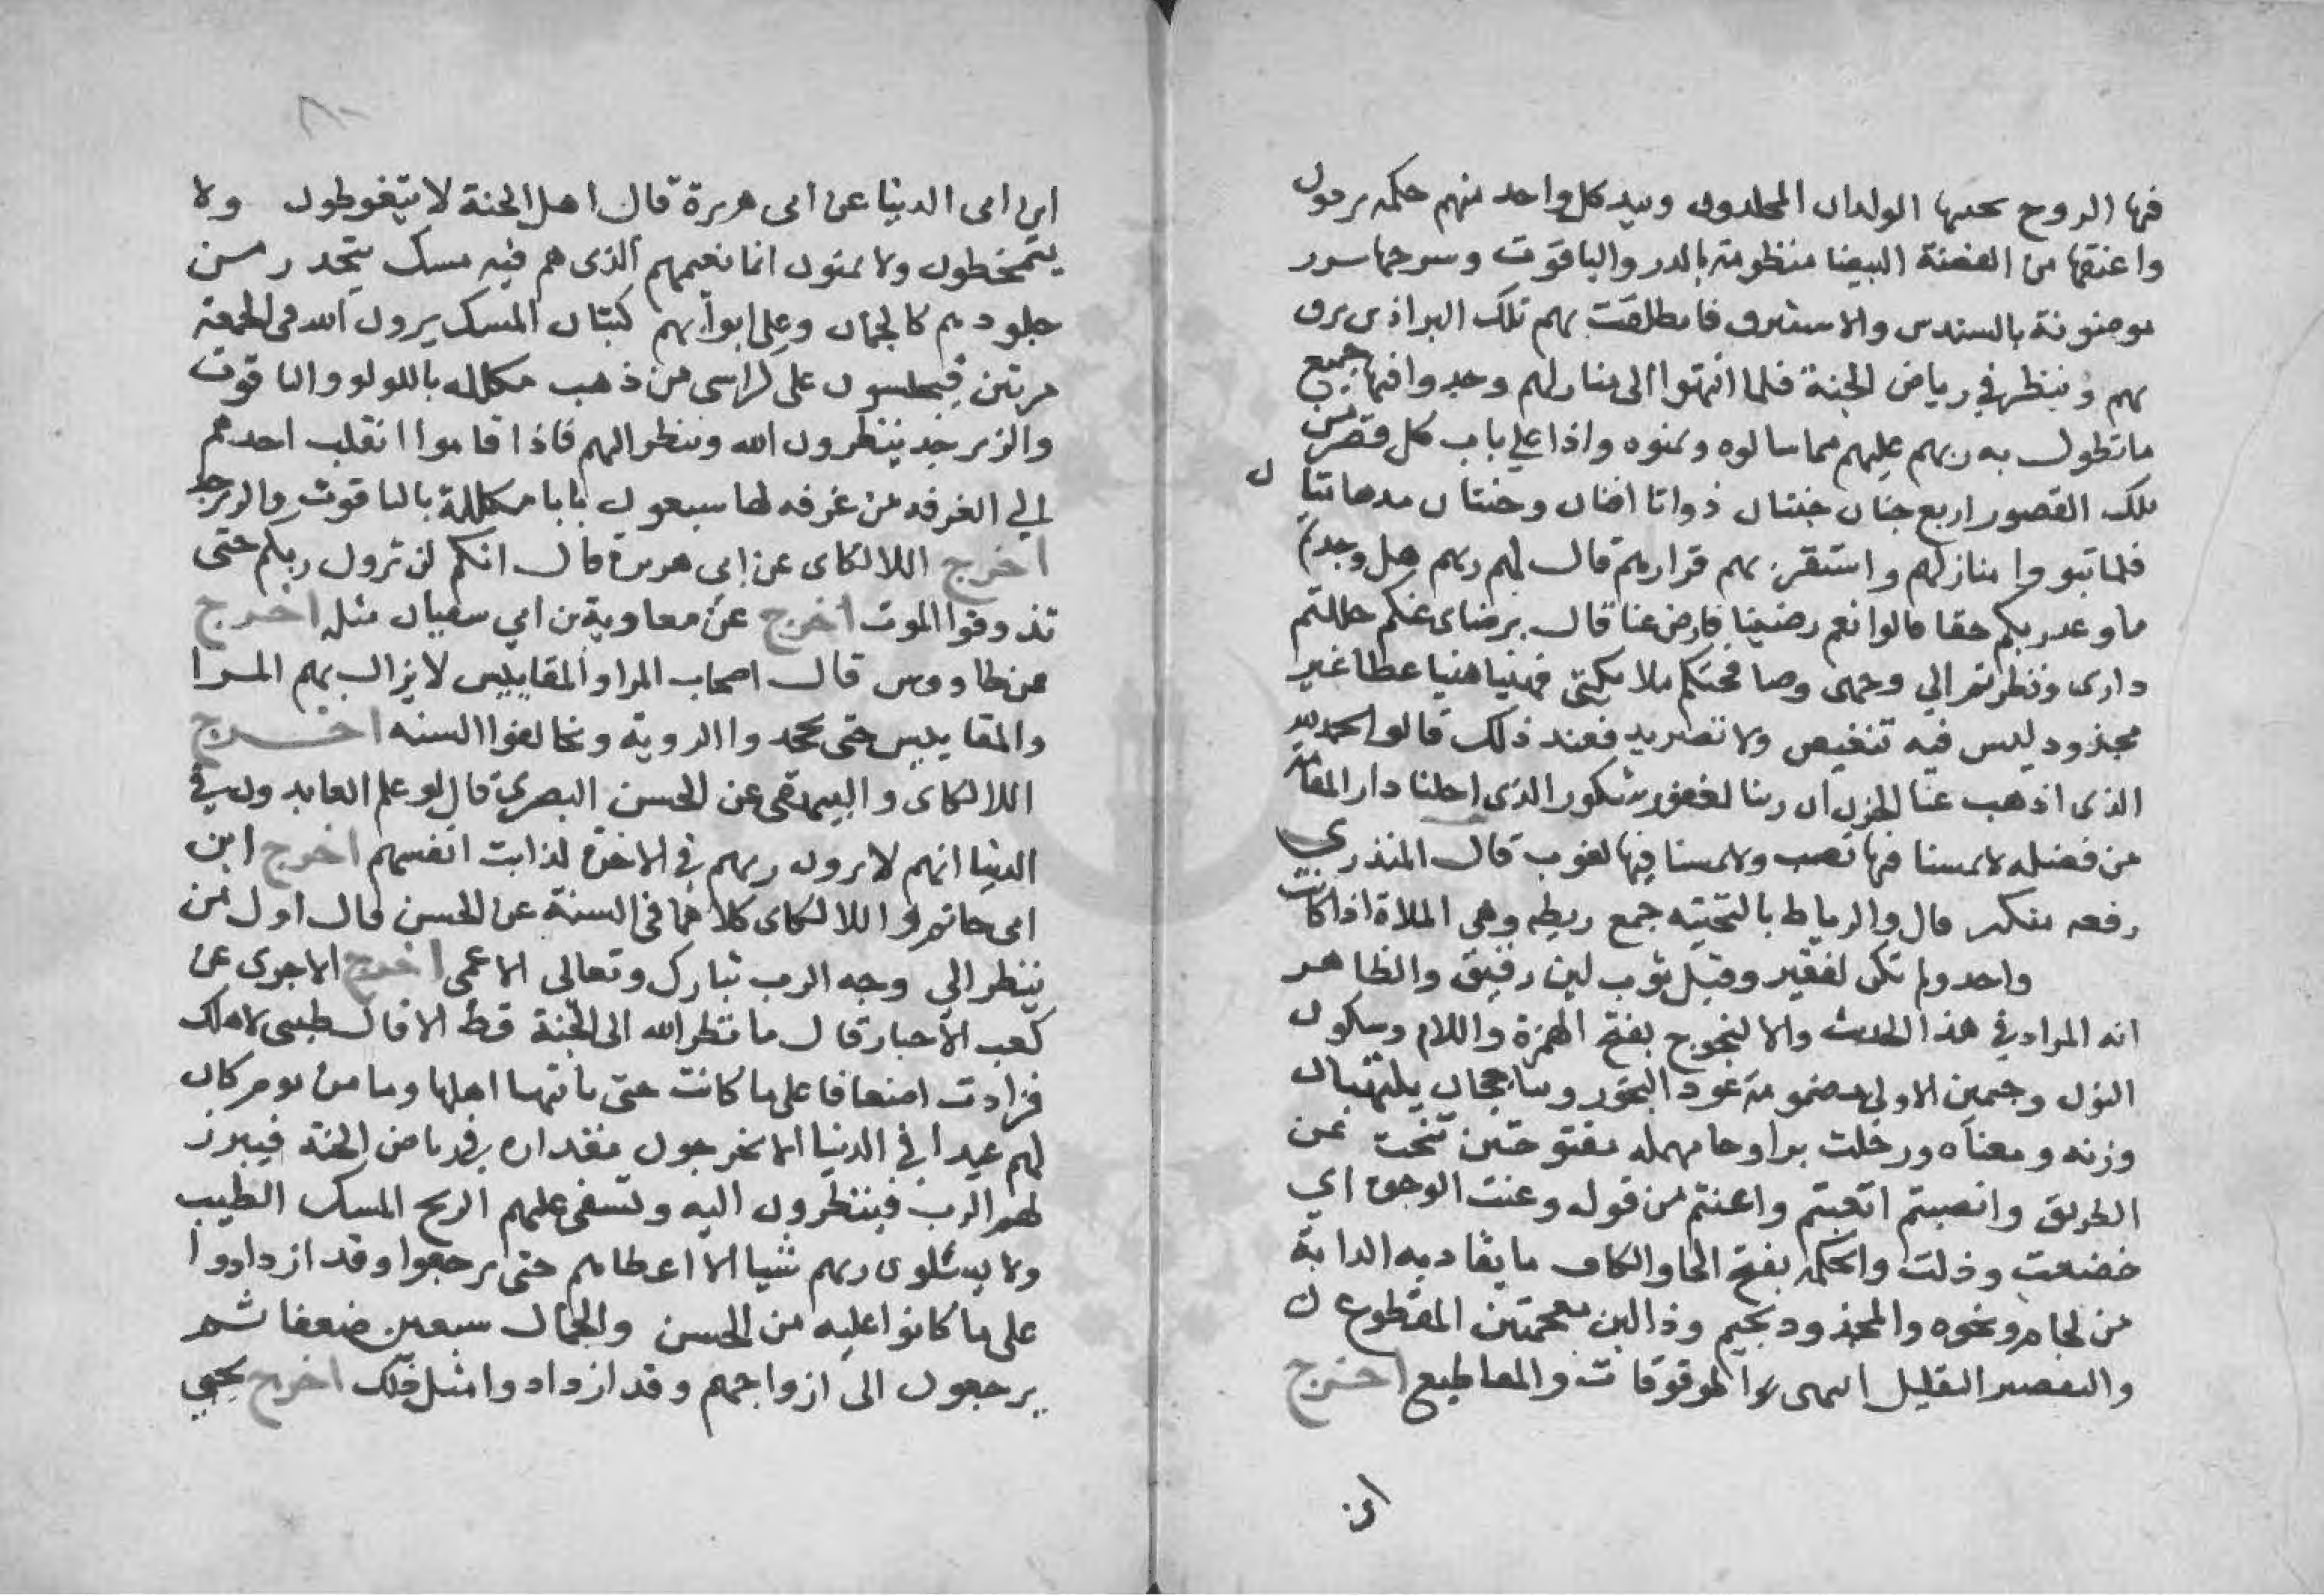 فيها الروح بجنبها الولدان المخلدون وبيد كل واحد منهم حكمة برذون
واعنتها من الفضة البيضا منظومة بالدر والياقوت وسرجها سرر
موضونة بالسندس والاستبرق فانطلقت بهم تلك البراذين تزف
بهم وتنظر في رياض الجنة فلما انتهوا الى منازلهم وجدوا فيها جميع
ما تطول به ربهم عليهم مما سالوه وتمنوه واذا على باب كل قصر من
تلك القصور اربع جنان جنتان ذواتا افنان وجنتان مدهامتان
فلما تبووا منازلهم واستقر بهم قرارهم قال لهم ربهم هل وجدتم
ما وعد ربكم حقا قالوا نعم رضينا فارض عنا قال برضاى عنكم حللتم
دارى ونظرتم الي وجهى وصافحتكم ملايكتي فهنيا هنيا عطا غير
مجذوذ ليس فيه تنغيص ولا تصريد فعند ذلك قالوا الحمد لله
الذى اذهب عنا الحزن ان ربنا لغفور شكور الذى احلنا دار المقامة
من فضله لا يمسنا فيها نصب ولا يمسنا فيها لغوب قال المنذري
رفعه منكر قال والرياط بالتحتيه جمع ريطه وهي الملاة اذا كانت
واحد ولم تكن لفقين وقيل ثوب لين رقيق والظاهر
انه المراد في هذا الحديث والالنجوج بفتح الهمزة واللام وسكون
النون وجيمين الاولى مضمومة عود البخور ويتاججان يلتهبان
وزنه ومعناه وزحلت بزا وحا مهمله مفتوحتين تنحت عن
الطريق وانصبتم اتعبتم واعنتم من قوله وعنت الوجوه اي
خضعت وذلت والحكمة بفتح الحا والكاف ما يقاد به الدابة
من لجام ونحوه والمجذوذ بجيم وذالين معجمتين المقطوع
والتصريد التقليل انتهى الموقوفات والمقاطيع اخرج
ابن
ابن ابى الدنيا عن ابى هريرة قال اهل الجنة لا يتغوطون ولا
يتمخطون ولا يمنون انما نعيمهم الذى هم فيه مسك يتحدر من
جلودهم كالجمان وعلى ابوابهم كثبان المسك يرون الله فى الجمعة
مرتين فيجلسون على كراسى من ذهب مكلله باللولو والياقوت
والزبرجد ينظرون الله وينظر اليهم فاذا قاموا انقلب احدهم
الي الغرفه من غرفه لها سبعون بابا مكللة بالياقوت والزبرجد
اخرج اللالكاى عن ابي هريرة قال انكم لن ترون ربكم حتى
تذوقوا الموت اخرج عن معاوية بن ابي سفيان مثله اخرج
عن طاووس قال اصحاب المرا والمقاييس لا يزال بهم المرا
والمقاييس حتى يجحدوا الروية ويخالفوا السنه اخرج
اللالكاى والبيهقى عن الحسن البصري قال لو علم العابدون في
الدنيا انهم لا يرون ربهم في الاخرة لذابت انفسهم اخرج ابن
ابى حاتم واللالكاى كلاهما فى السنة عن الحسن قال اول من
ينظر الي وجه الرب تبارك وتعالى الاعمى اخرج الاجرى عن
كعب الاحبار قال ما نظر الله الى الجنة قط الا قال طيبى لاهلك
فزادت اضعافا على ما كانت حتى ياتيها اهلها وما من يوم كان
لهم عيدا في الدنيا الا يخرجون مقداره في رياض الجنة فيبرز
لهم الرب فينظرون اليه وتسفى عليهم الريح المسك الطيب
ولا يسئلون ربهم شيا الا اعطاهم حتى يرجعوا وقد ازدادوا
على ما كانوا عليه من الحسن والجمال سبعين ضعفا ثم
يرجعون الى ازواجهم وقد ازدادوا مثل ذلك اخرج يحيى